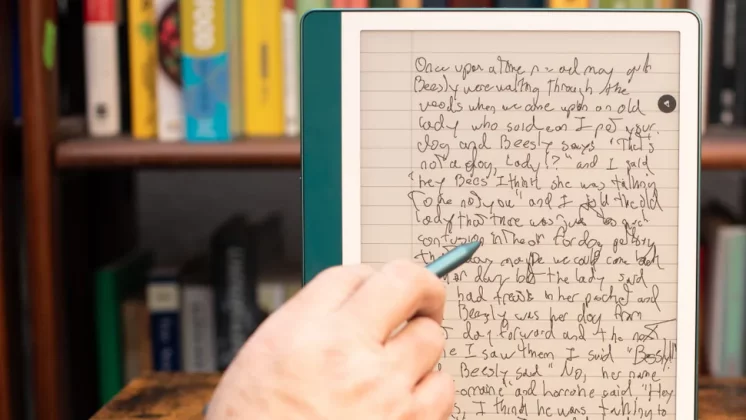 Once upon a time
Beesly were walking through the
woods when we came upon an old
lady who said can I pet your
dog and Beesly says "That's
not a dog, Lady!?" and I said
"hey Bees I think she was talking
to me not you" and I told the old
lady that there was just too much
confusion in the air for dog petting
day maybe we could come back
day but the lady said
had treats in her pocket and
Beesly was her dog from
day forward and the next
I saw them I said "Beesly!"
Beesly said "No, her name
and said "Hey
I think he was talking to